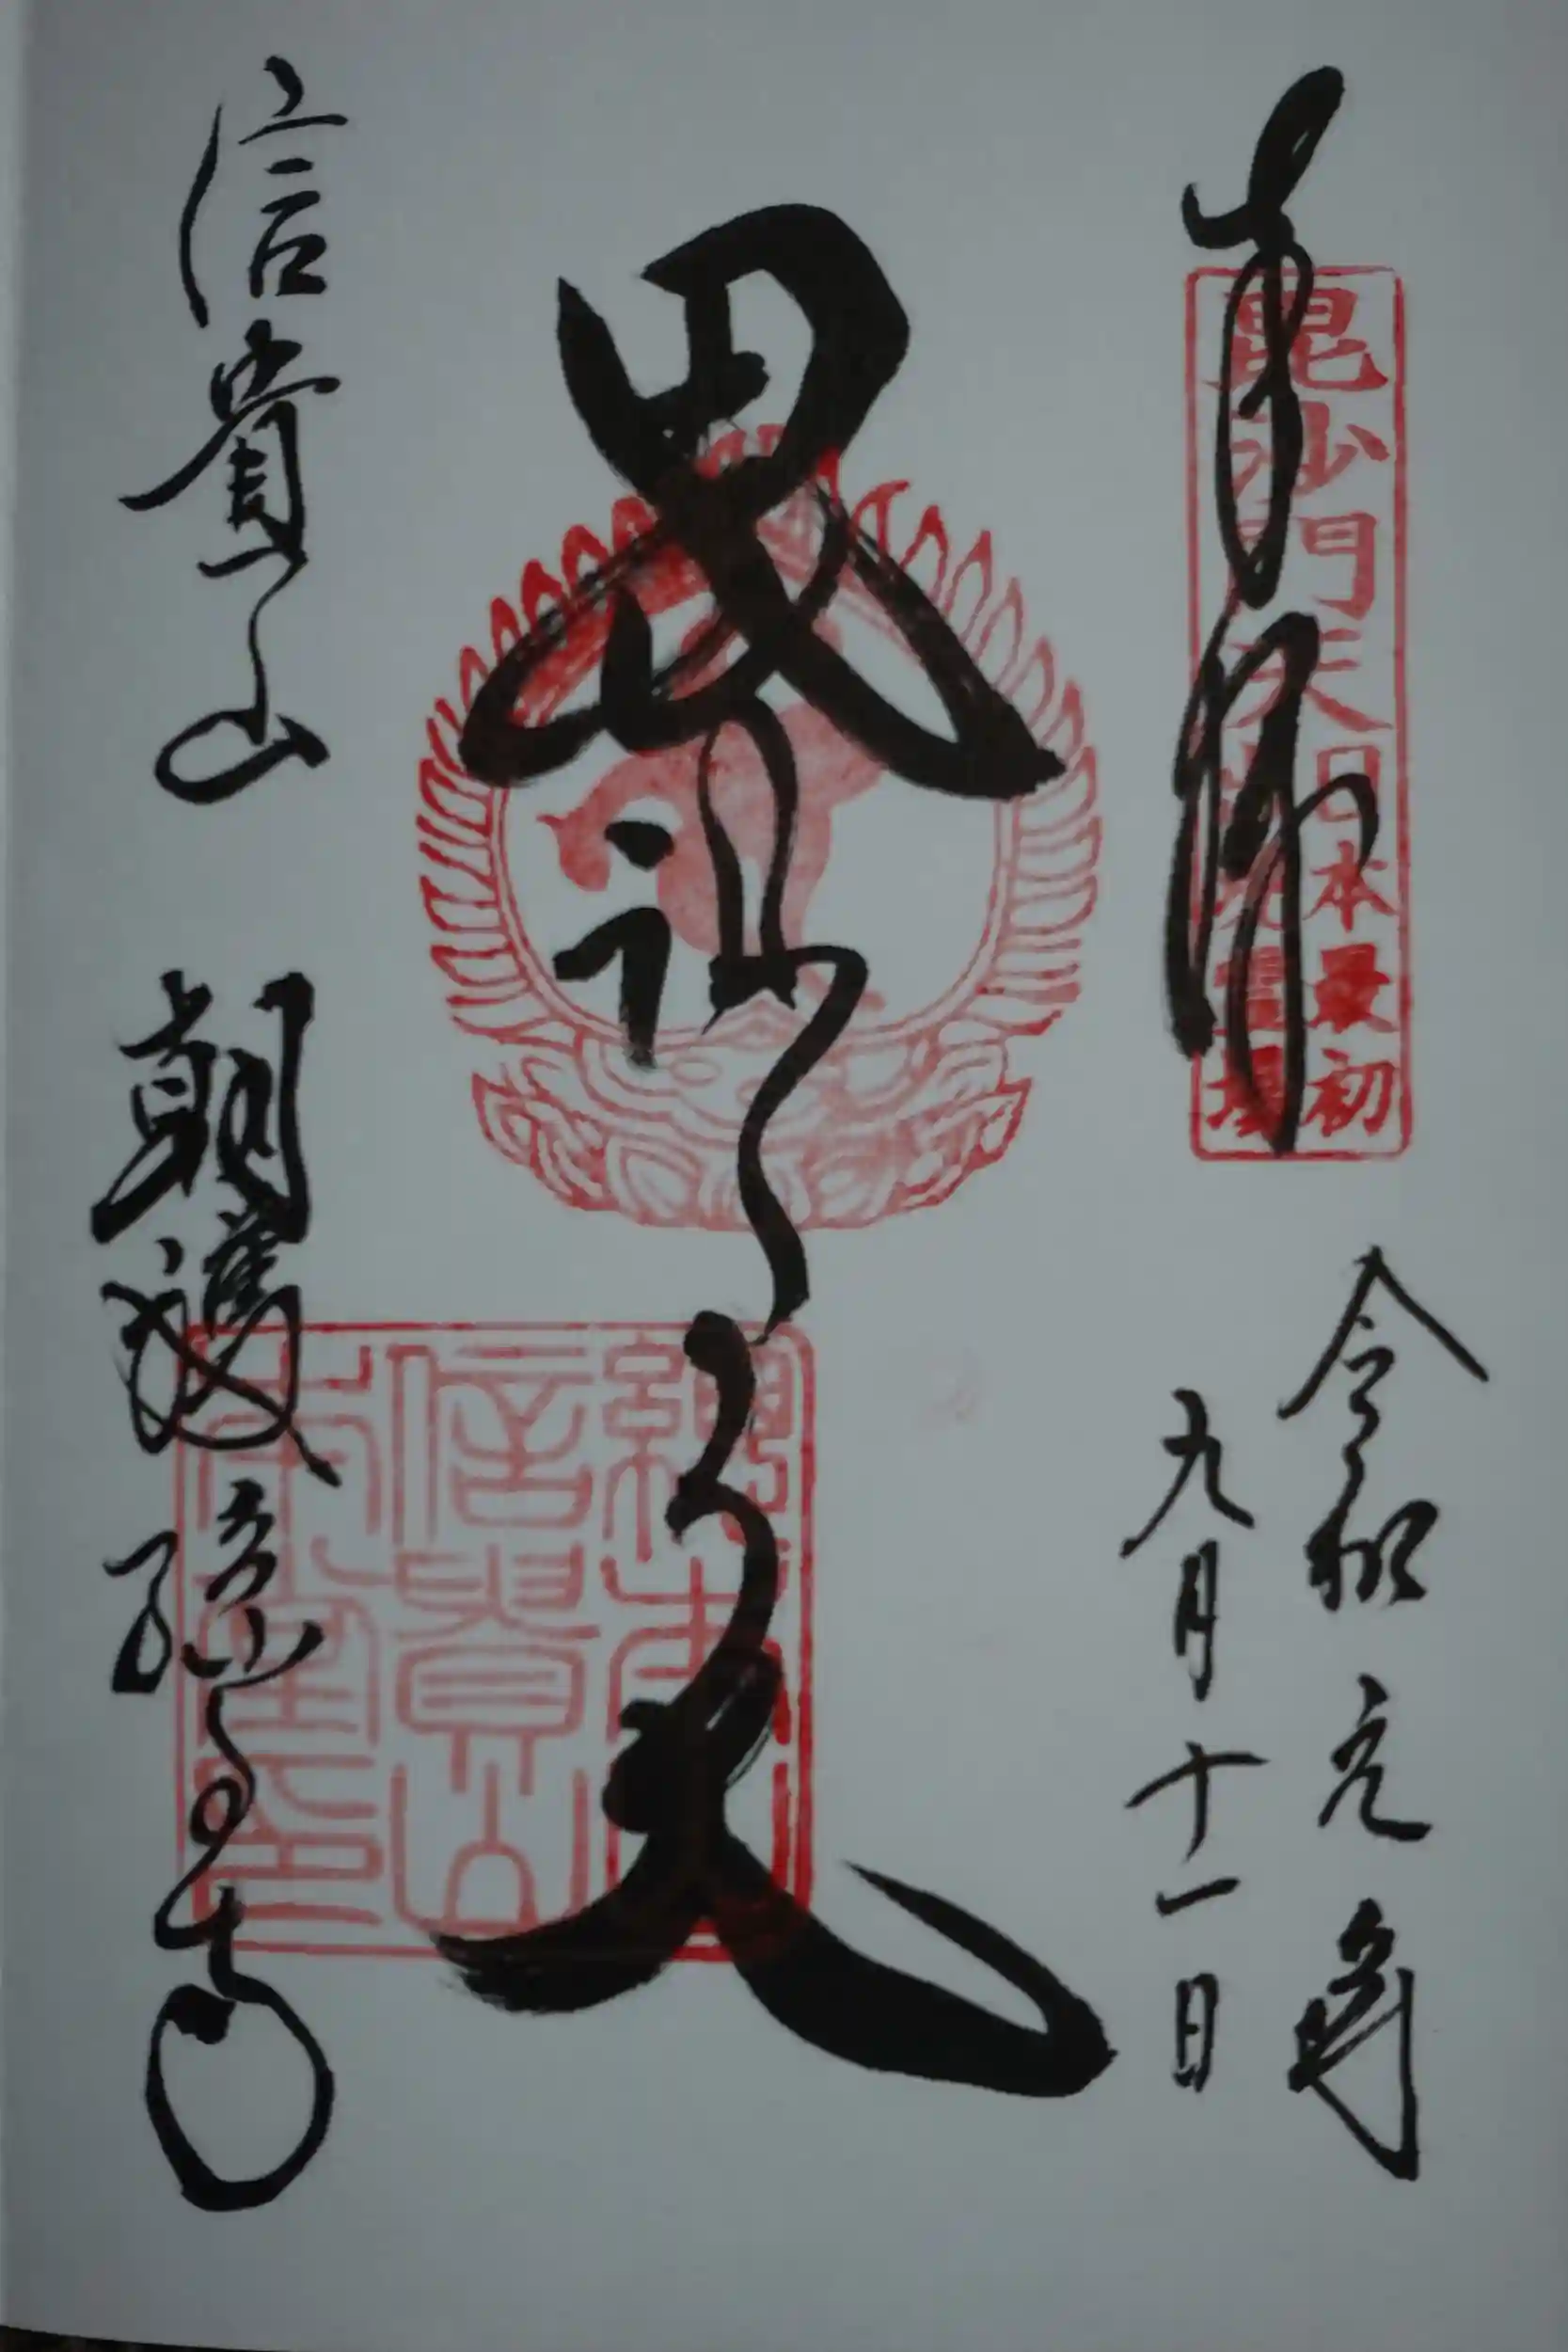 奉拝
毘沙門天
日本最初
出現霊場
令和元年
九月十一日
毘沙門天
總本山
信貴山
本堂印
信貴山 朝護孫子寺